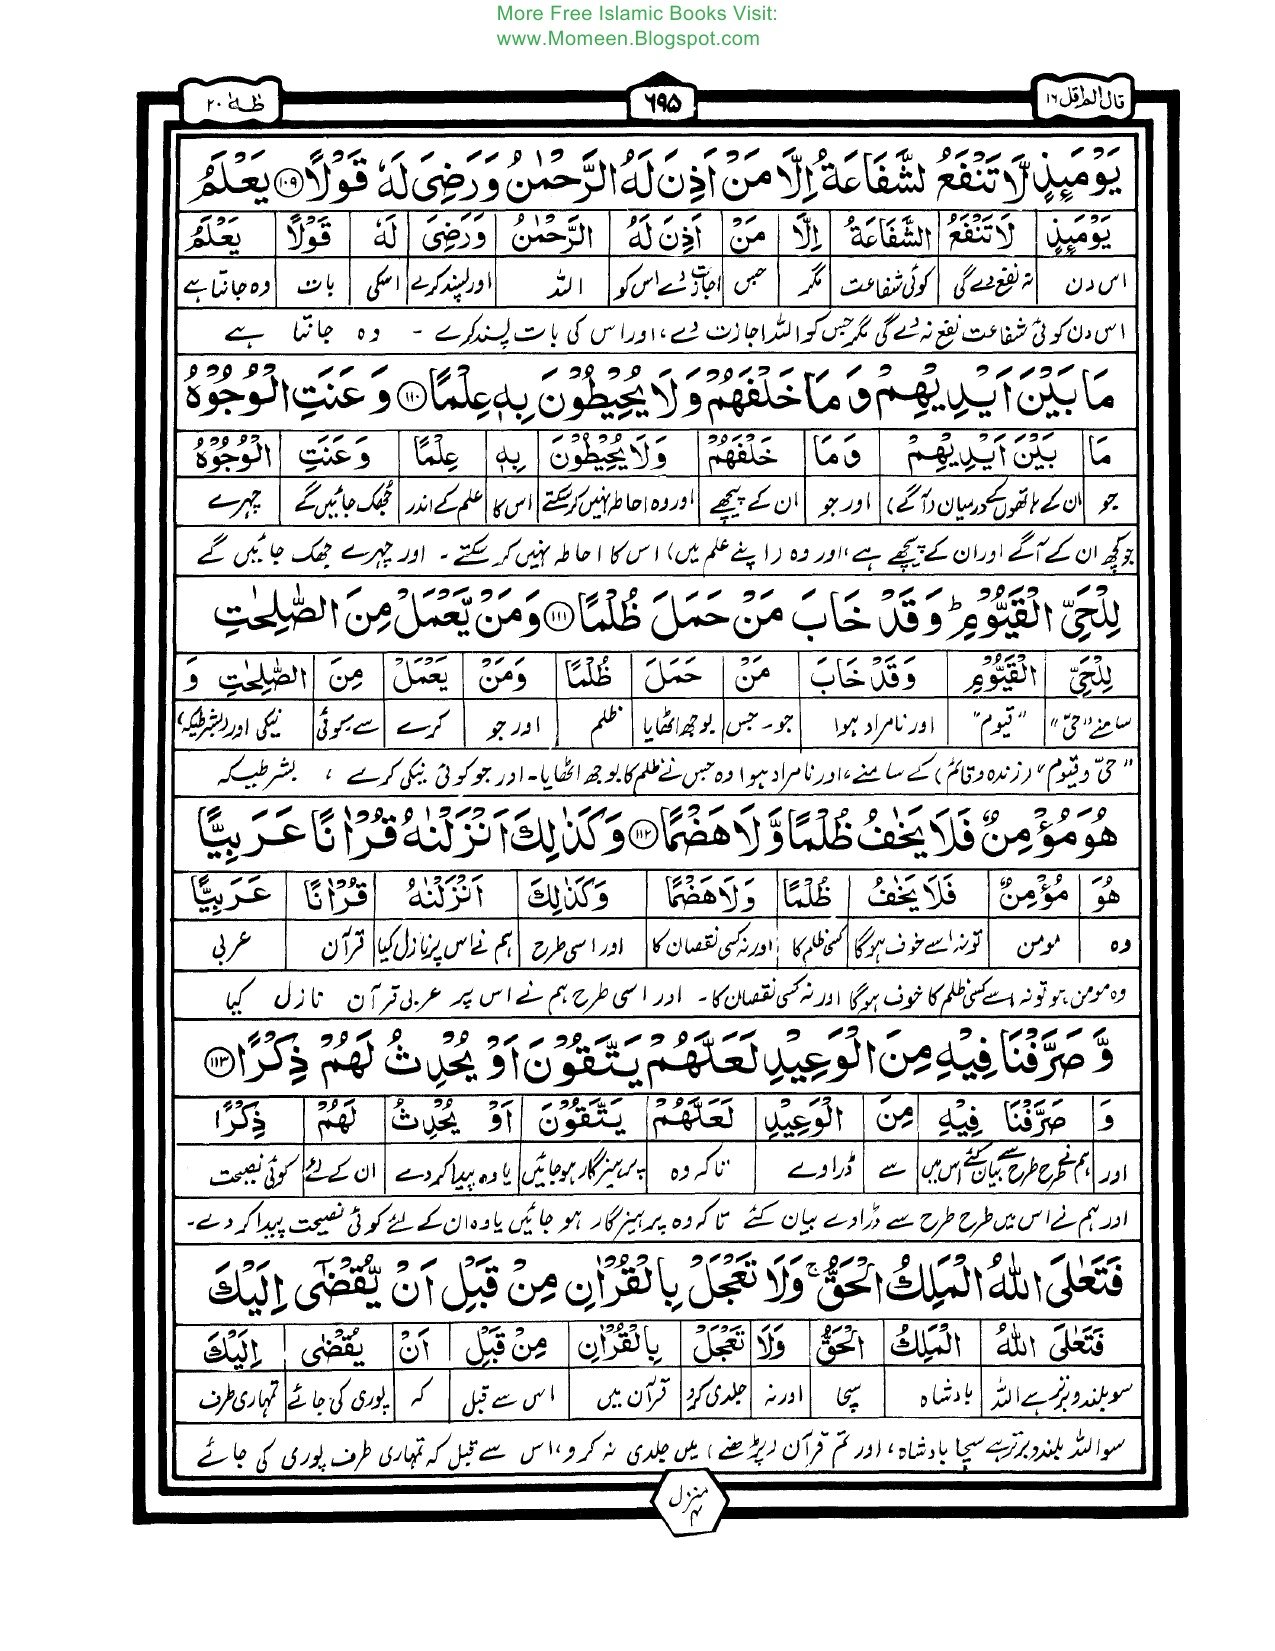 More Free Islamic Books Visit:
www.Momeen.Blogspot.com
قال الم اقل ١٦
٦٩٥
طٰهٰ ٢٠
يَوْمَئِذٍ لَّا تَنْفَعُ الشَّفَاعَةُ اِلَّا مَنْ اَذِنَ لَهُ الرَّحْمٰنُ وَرَضِىَ لَهٗ قَوْلًا ۝١٠٩ يَعْلَمُ
يَوْمَئِذٍ لَا تَنْفَعُ الشَّفَاعَةُ اِلَّا مَنْ اَذِنَ لَهُ الرَّحْمٰنُ وَرَضِىَ لَهٗ قَوْلًا يَعْلَمُ
اس دن نہ نفع دے گی کوئی شفاعت مگر جس اجازت دے اس کو اللہ اور پسند کرے اسکی بات وہ جانتا ہے
اس دن کوئی شفاعت نفع نہ دے گی مگر جس کو اللہ اجازت دے، اور اس کی بات پسند کرے ۔ وہ جانتا ہے
مَا بَيْنَ اَيْدِيْهِمْ وَمَا خَلْفَهُمْ وَلَا يُحِيْطُوْنَ بِهٖ عِلْمًا ۝١١٠ وَعَنَتِ الْوُجُوْهُ
مَا بَيْنَ اَيْدِيْهِمْ وَمَا خَلْفَهُمْ وَلَا يُحِيْطُوْنَ بِهٖ عِلْمًا وَعَنَتِ الْوُجُوْهُ
جو ان کے ہاتھوں کے درمیان (آگے) اور جو ان کے پیچھے اور وہ احاطہ نہیں کر سکتے اس کا علم کے اندر جھک جائیں گے چہرے
جو کچھ ان کے آگے اور ان کے پیچھے ہے، اور وہ (اپنے علم میں) اس کا احاطہ نہیں کر سکتے ۔ اور چہرے جھک جائیں گے
لِلْحَىِّ الْقَيُّوْمِ ؕ وَقَدْ خَابَ مَنْ حَمَلَ ظُلْمًا ۝١١١ وَمَنْ يَّعْمَلْ مِنَ الصّٰلِحٰتِ
لِلْحَىِّ الْقَيُّوْمِ وَقَدْ خَابَ مَنْ حَمَلَ ظُلْمًا وَمَنْ يَعْمَلْ مِنَ الصّٰلِحٰتِ وَ
سامنے "حیّ" "قیوم" اور نامراد ہوا جو ۔ جس بوجھ اٹھایا ظلم اور جو کرے سے ۔ کوئی نیکی اور (بشرطیکہ)
"حیّ و قیوم" (زندہ و قائم) کے سامنے، اور نامراد ہوا وہ جس نے ظلم کا بوجھ اٹھایا ۔ اور جو کوئی نیکی کرے ، بشرطیکہ
هُوَ مُؤْمِنٌ فَلَا يَخٰفُ ظُلْمًا وَّلَا هَضْمًا ۝١١٢ وَكَذٰلِكَ اَنْزَلْنٰهُ قُرْاٰنًا عَرَبِيًّا
هُوَ مُؤْمِنٌ فَلَا يَخٰفُ ظُلْمًا وَلَا هَضْمًا وَكَذٰلِكَ اَنْزَلْنٰهُ قُرْاٰنًا عَرَبِيًّا
وہ مومن تو نہ اسے خوف ہوگا کسی ظلم کا اور نہ کسی نقصان کا اور اسی طرح ہم نے اس پر نازل کیا قرآن عربی
وہ مومن ہو تو نہ اسے کسی ظلم کا خوف ہوگا اور نہ کسی نقصان کا ۔ اور اسی طرح ہم نے اس پر عربی قرآن نازل کیا
وَّصَرَّفْنَا فِيْهِ مِنَ الْوَعِيْدِ لَعَلَّهُمْ يَتَّقُوْنَ اَوْ يُحْدِثُ لَهُمْ ذِكْرًا ۝١١٣
وَ صَرَّفْنَا فِيْهِ مِنَ الْوَعِيْدِ لَعَلَّهُمْ يَتَّقُوْنَ اَوْ يُحْدِثُ لَهُمْ ذِكْرًا
اور ہم نے طرح طرح سے بیان کئے اس میں سے ڈراوے تاکہ وہ پرہیزگار ہو جائیں یا وہ پیدا کر دے ان کے لئے کوئی نصیحت
اور ہم نے اس میں طرح طرح سے ڈراوے بیان کئے تاکہ وہ پرہیزگار ہو جائیں یا وہ ان کے لئے کوئی نصیحت پیدا کر دے ۔
فَتَعٰلَى اللّٰهُ الْمَلِكُ الْحَقُّ ۚ وَلَا تَعْجَلْ بِالْقُرْاٰنِ مِنْ قَبْلِ اَنْ يُّقْضٰٓى اِلَيْكَ
فَتَعٰلَى اللّٰهُ الْمَلِكُ الْحَقُّ وَلَا تَعْجَلْ بِالْقُرْاٰنِ مِنْ قَبْلِ اَنْ يُقْضٰٓى اِلَيْكَ
سو بلند و برتر ہے اللہ بادشاہ سچا اور نہ جلدی کرو قرآن میں اس سے قبل کہ پوری کی جائے تمہاری طرف
سو اللہ بلند و برتر ہے سچا بادشاہ، اور تم قرآن (پڑھنے) میں جلدی نہ کرو، اس سے قبل کہ تمہاری طرف پوری کی جائے
منزل ۴